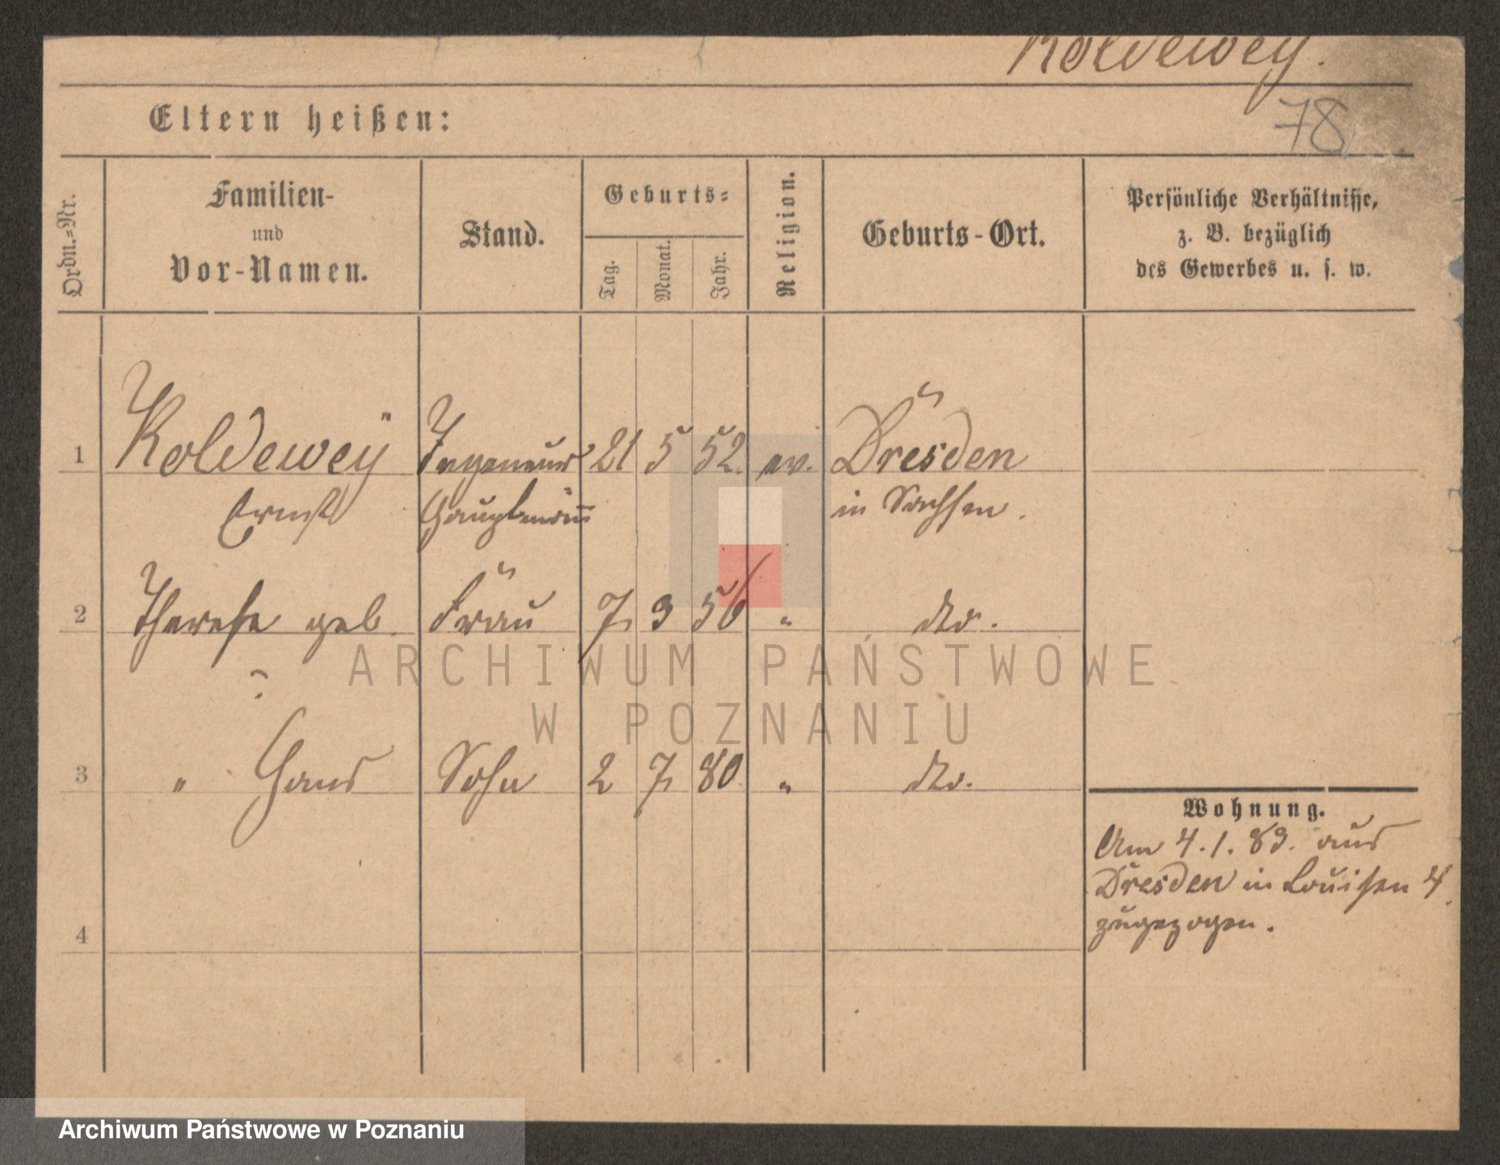 Koldewey.
78
Eltern heißen:
Ordn.=Nr.
Familien-
und
Vor-Namen.
Stand.
Geburts=
Tag.
Monat.
Jahr.
Religion.
Geburts-Ort.
Persönliche Verhältnisse,
z. B. bezüglich
des Gewerbes u. s. w.
1 Koldewey Ingenieur 21 5 52. ev. Dresden
Ernst Hauptmann in Sachsen.
2 Therese geb. Frau 7 3 56 " dto.
?
3 " Hans Sohn 2 7 80 " dto.
4
Wohnung.
Am 4.1.83. aus
Dresden in Louisen 4.
zugezogen.
ARCHIWUM PAŃSTWOWE
W POZNANIU
Archiwum Państwowe w Poznaniu